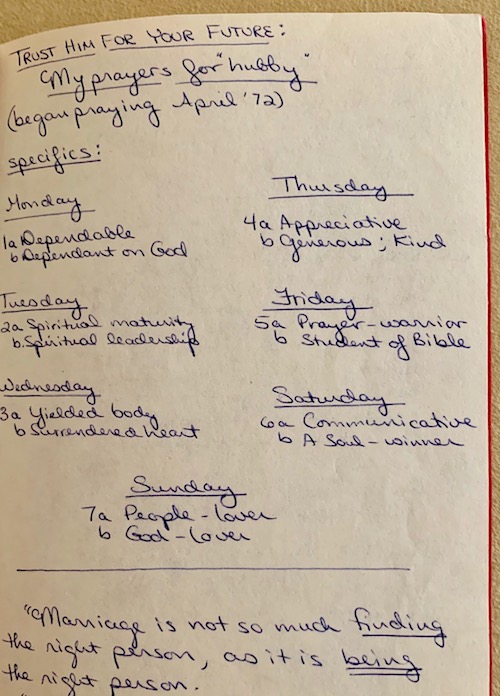 TRUST HIM FOR YOUR FUTURE:
"My prayers for "hubby"
(began praying April '72)
specifics:
Monday
1a Dependable
b Dependant on God
Tuesday
2a Spiritual maturity
b. Spiritual leadership
Wednesday
3a Yielded body
b Surrendered heart
Thursday
4a Appreciative
b Generous; Kind
Friday
5a Prayer-warrior
b Student of Bible
Saturday
6a Communicative
b A Soul-winner
Sunday
7a People-lover
b God-lover
"Marriage is not so much finding
the right person, as it is being
the right person.